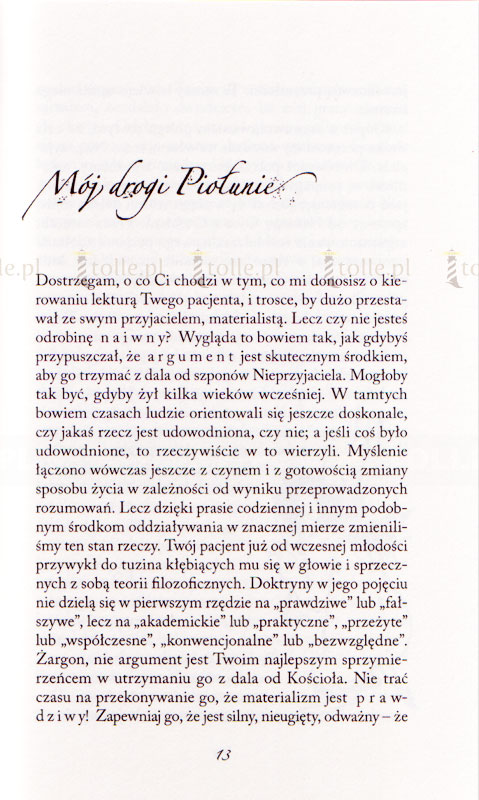 Mój drogi Piołunie
tolle.pl tolle.pl tolle.pl
Dostrzegam, o co Ci chodzi w tym, co mi donosisz o kie-
rowaniu lekturą Twego pacjenta, i trosce, by dużo przesta-
wał ze swym przyjacielem, materialistą. Lecz czy nie jesteś
odrobinę n a i w n y? Wygląda to bowiem tak, jak gdybyś
przypuszczał, że a r g u m e n t jest skutecznym środkiem,
aby go trzymać z dala od szponów Nieprzyjaciela. Mogłoby
tak być, gdyby żył kilka wieków wcześniej. W tamtych
bowiem czasach ludzie orientowali się jeszcze doskonale,
czy jakaś rzecz jest udowodniona, czy nie; a jeśli coś było
udowodnione, to rzeczywiście w to wierzyli. Myślenie
łączono wówczas jeszcze z czynem i z gotowością zmiany
sposobu życia w zależności od wyniku przeprowadzonych
rozumowań. Lecz dzięki prasie codziennej i innym podob-
nym środkom oddziaływania w znacznej mierze zmienili-
śmy ten stan rzeczy. Twój pacjent już od wczesnej młodości
przywykł do tuzina kłębiących mu się w głowie i sprzecz-
nych z sobą teorii filozoficznych. Doktryny w jego pojęciu
nie dzielą się w pierwszym rzędzie na „prawdziwe” lub „fał-
szywe”, lecz na „akademickie” lub „praktyczne”, „przeżyte”
lub „współczesne”, „konwencjonalne” lub „bezwzględne”.
Żargon, nie argument jest Twoim najlepszym sprzymie-
rzeńcem w utrzymaniu go z dala od Kościoła. Nie trać
czasu na przekonywanie go, że materializm jest p r a w-
d z i w y! Zapewniaj go, że jest silny, nieugięty, odważny – że
13